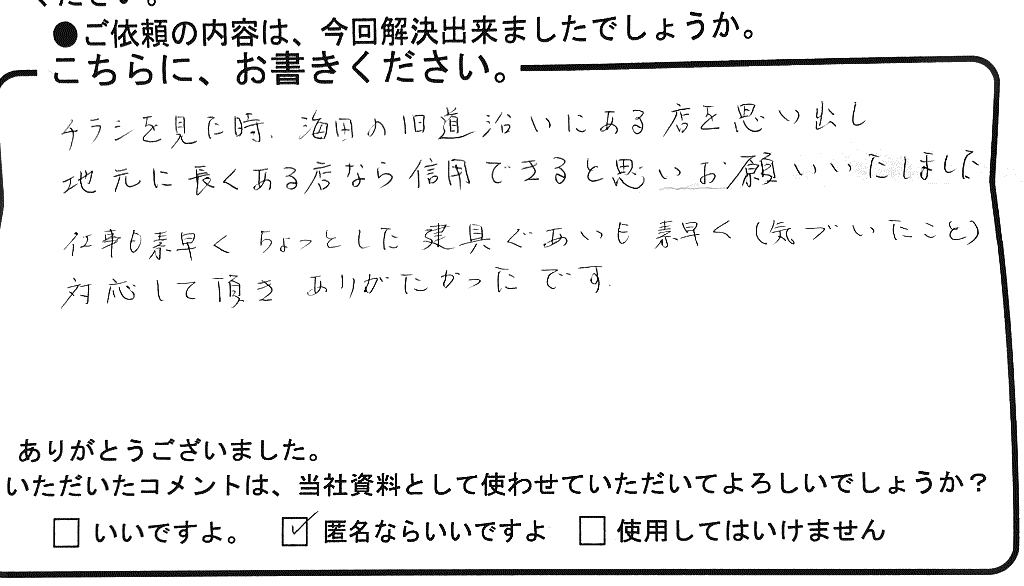 ください。
●ご依頼の内容は、今回解決出来ましたでしょうか。
こちらに、お書きください。
チラシを見た時、海田の旧道沿いにある店を思い出し
地元に長くある店なら信用できると思いお願いいたしました
仕事も素早く ちょっとした 建具ぐあいも 素早く (気づいたこと)
対応して頂き ありがたかったです.
ありがとうございました。
いただいたコメントは、当社資料として使わせていただいてよろしいでしょうか？
□ いいですよ。 ☑ 匿名ならいいですよ □ 使用してはいけません